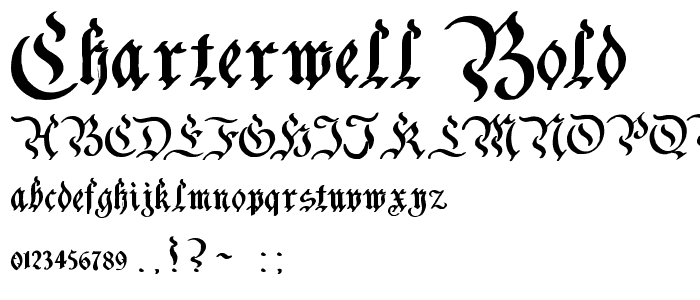 Charterwell Bold
ABCDEFGHIJKLMNOPQ
abcdefghijklmnopqrstuvwxyz
0123456789 .,!?~ :;